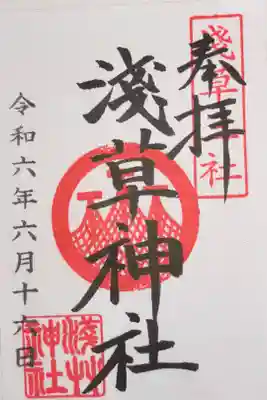 奉拝
淺草神社
淺草神社
令和六年六月十六日
淺草神社